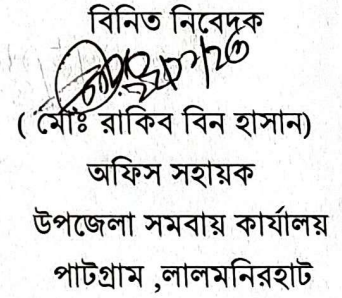 বিনিত নিবেদক
( মোঃ রাকিব বিন হাসান)
অফিস সহায়ক
উপজেলা সমবায় কার্যালয়
পাটগ্রাম ,লালমনিরহাট